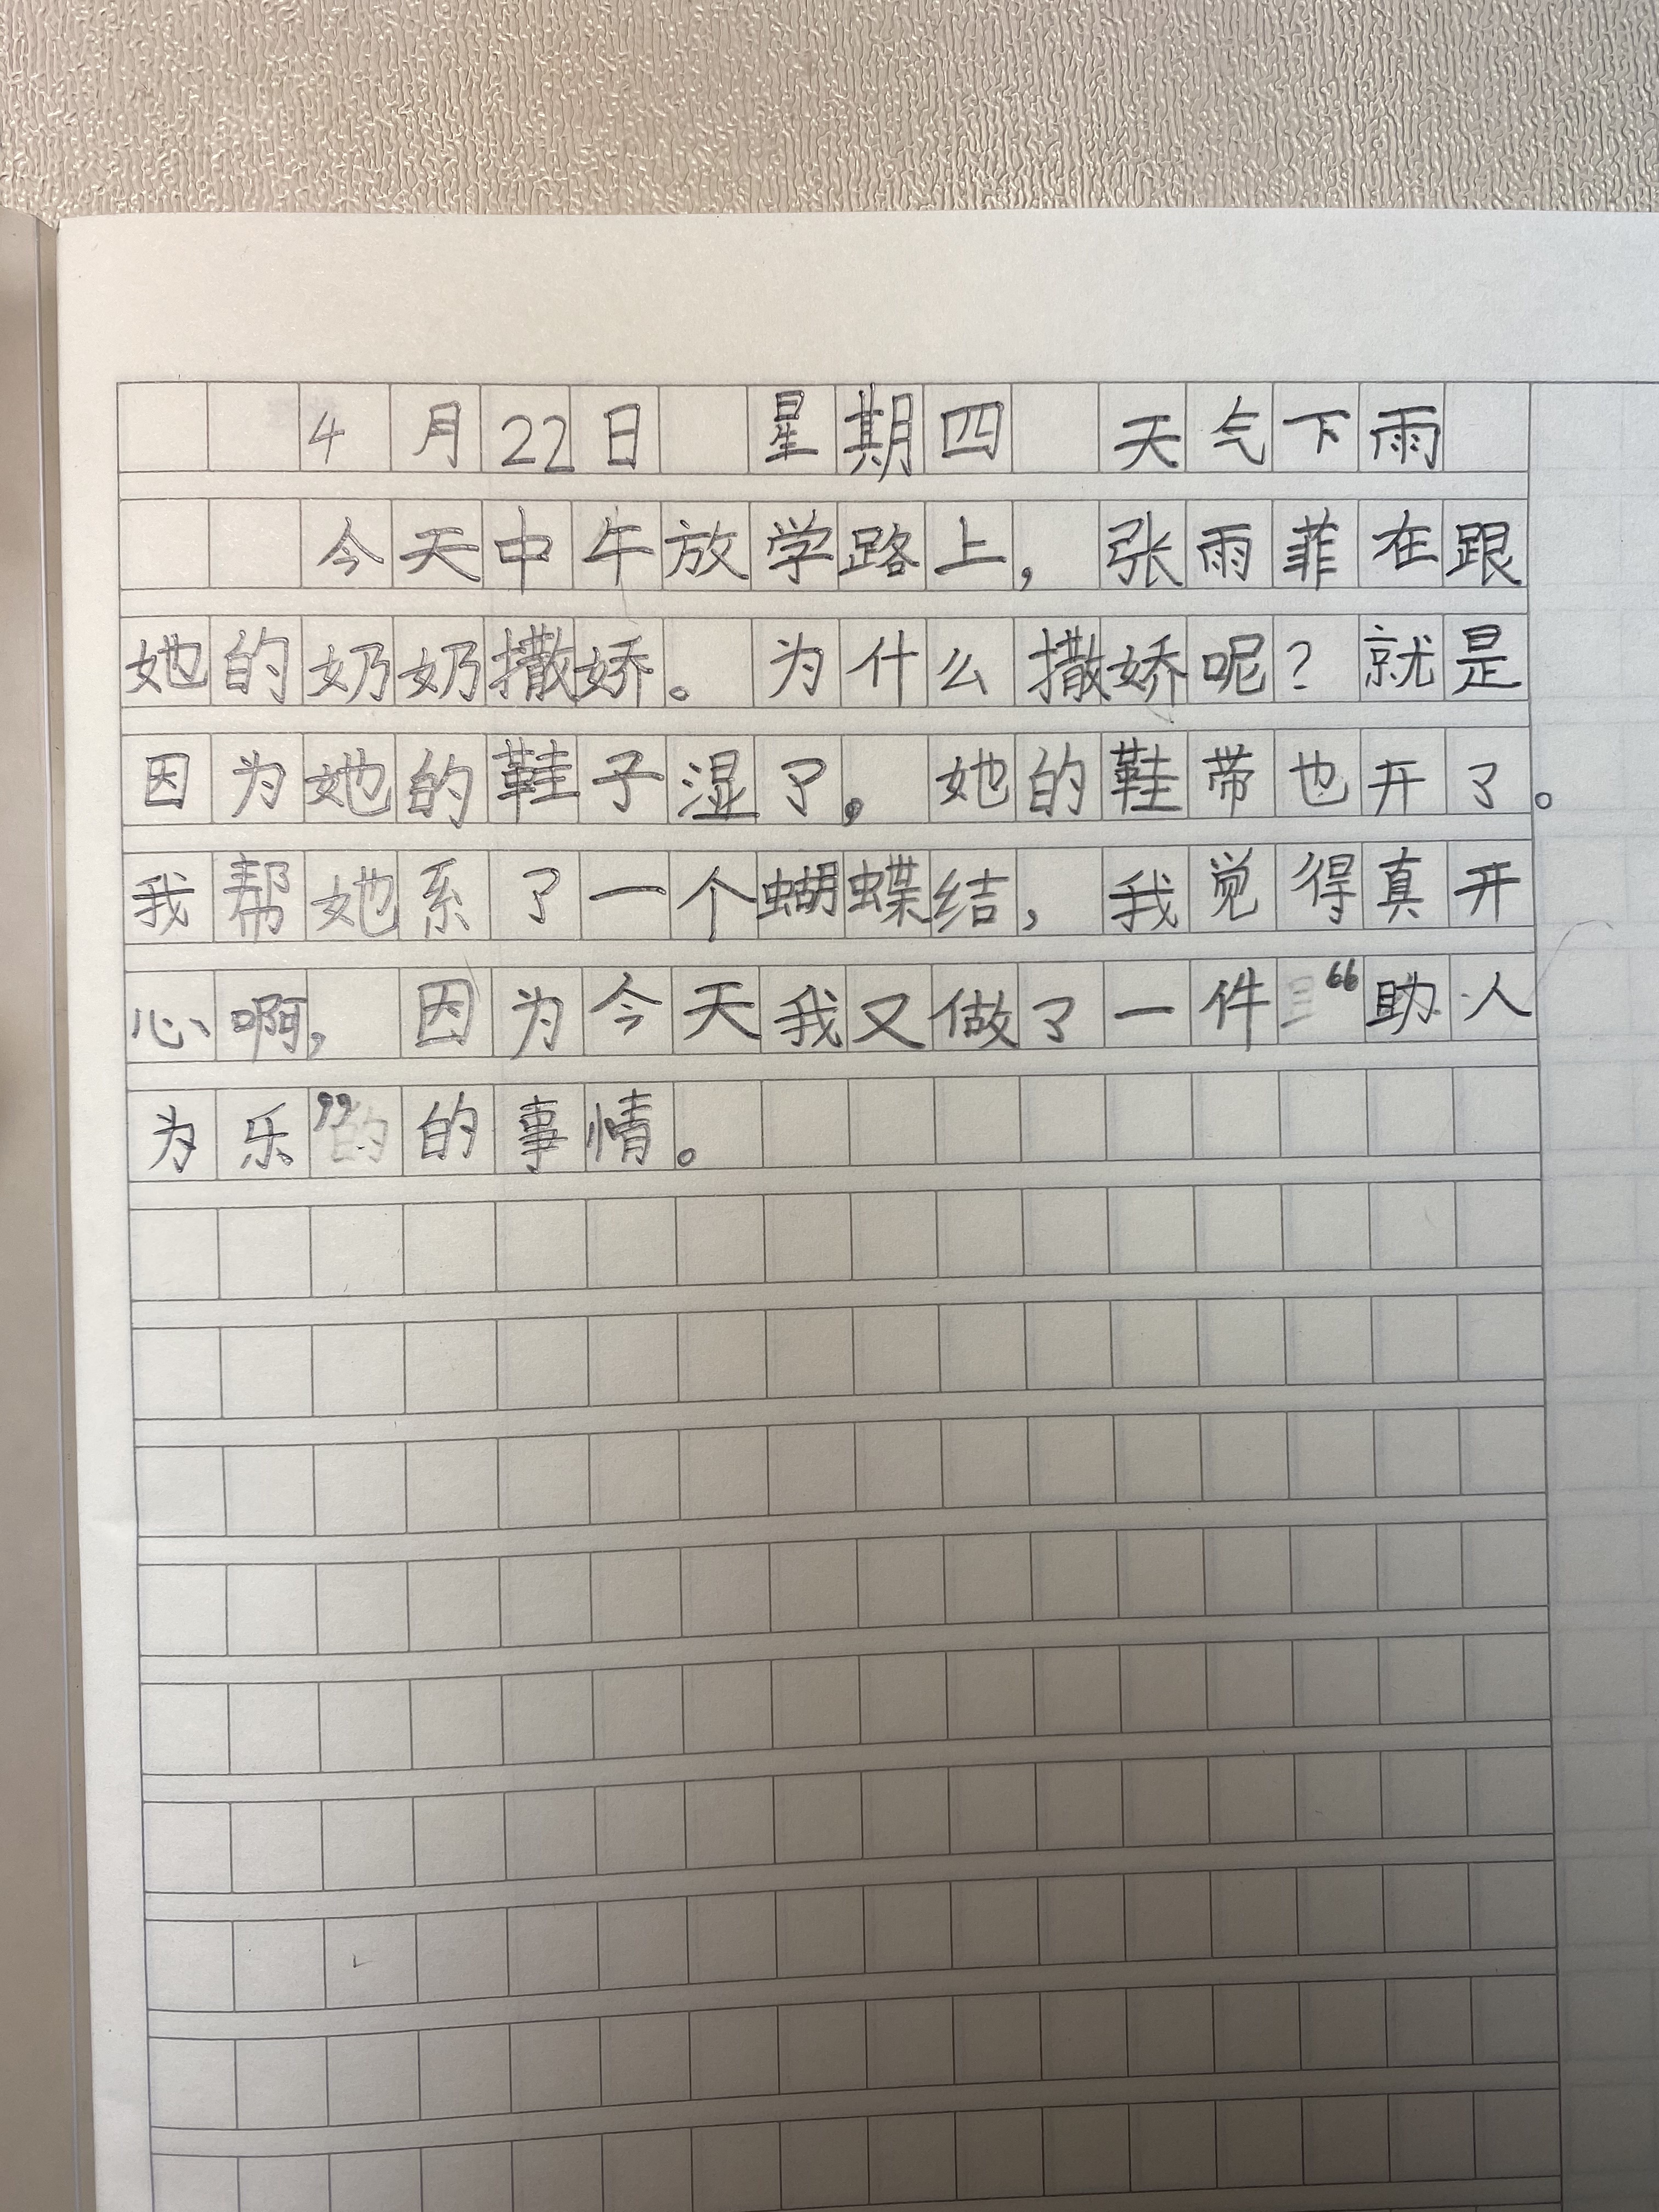 4月22日 星期四 天气下雨
今天中午放学路上，张雨菲在跟
她的奶奶撒娇。为什么撒娇呢？就是
因为她的鞋子湿了，她的鞋带也开了。
我帮她系了一个蝴蝶结，我觉得真开
心啊，因为今天我又做了一件“助人
为乐”的事情。